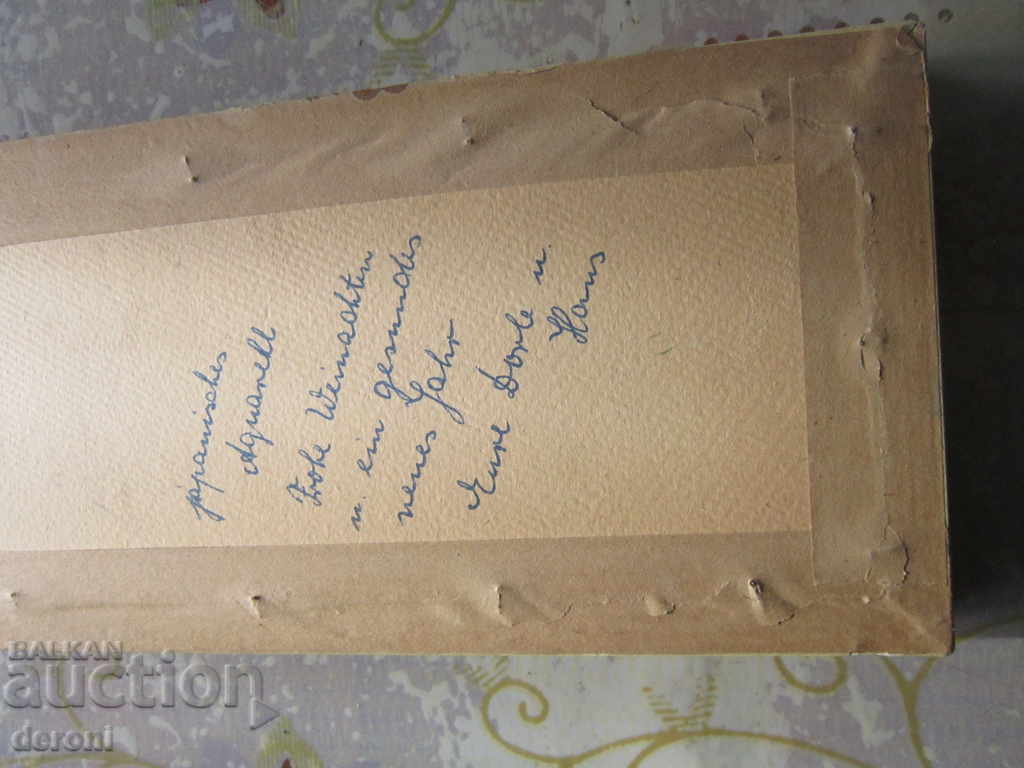 japanisches
Aquarell
Frohe Weinachten
u. ein gesundes
neues Jahr
Eure Dorle u.
Hans
BALKAN
auction
deroni